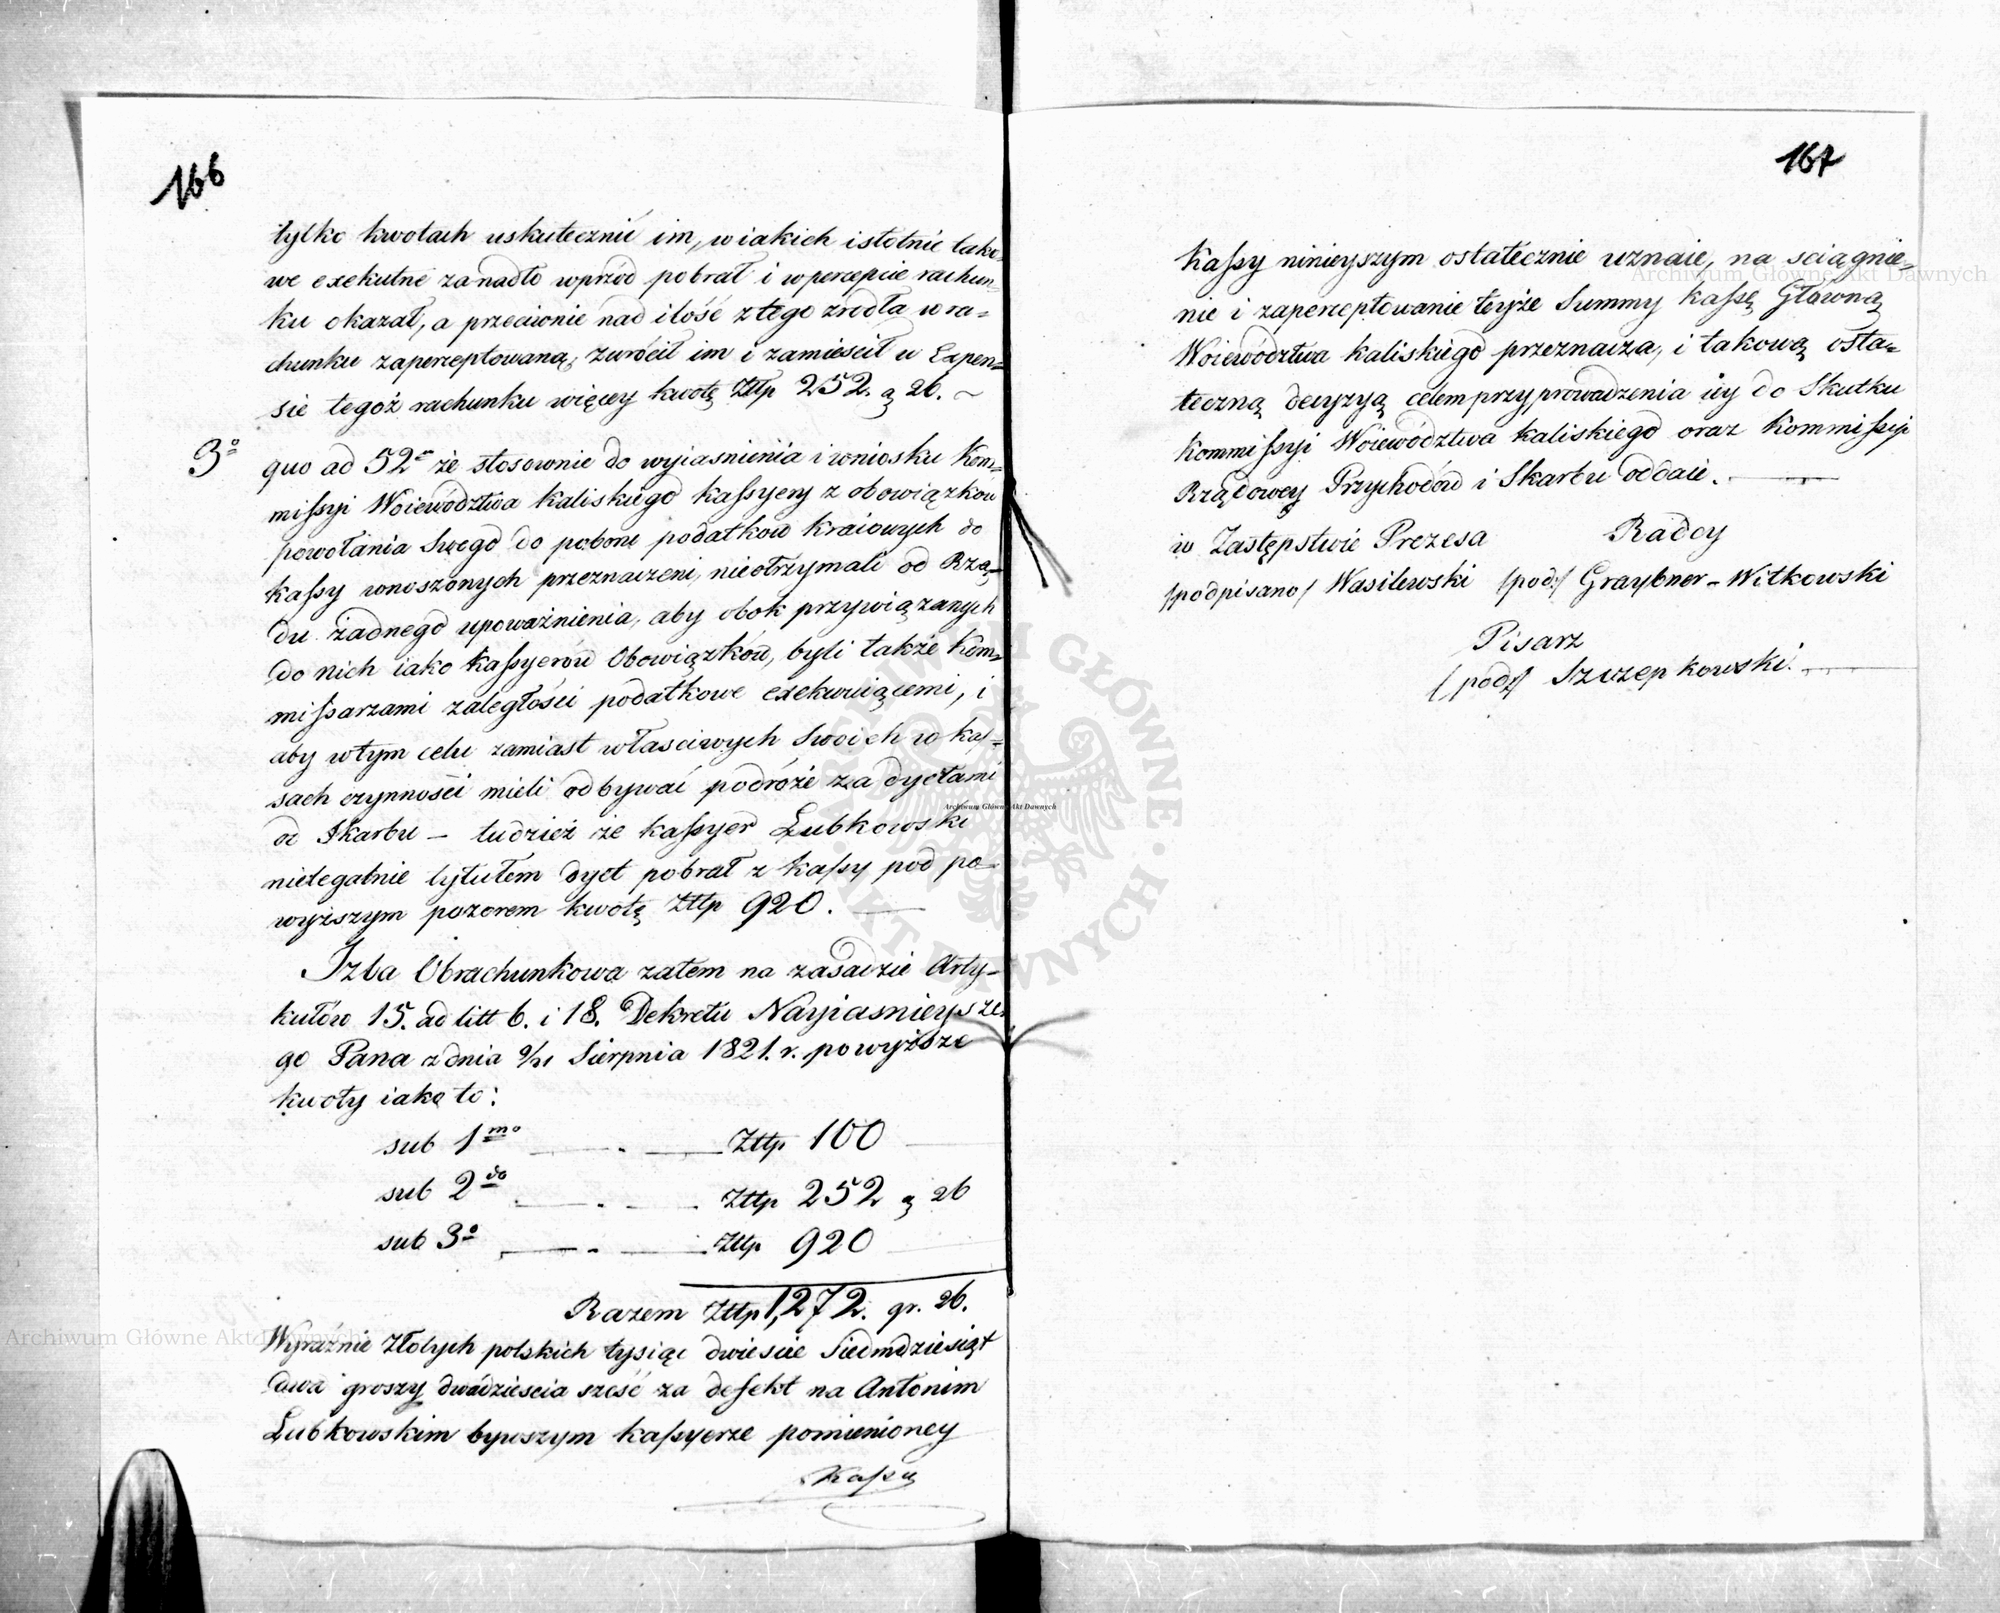 166
tylko kwotach uskutecznić im, w iakich istotnie tako-
we exekutne zanadto wprzód pobrał i w percepcie rachun-
ku okazał, a przeciwnie nad ilość z tego zrodła w ra=
chunku zaperceptowaną, zwrócił im i zamieścił w Expen=
sie tegoż rachunku więcey kwotę Złtp 252. g 26. ~
3o quo ad 52m że stosownie do wyiasnienia i wniosku Kom=
missyi Woiewództwa Kaliskiego Kassyery z obowiązków
powołania Swego do poboru podatków kraiowych do
Kassy wnoszonych przeznaczeni, nieotrzymali od Rzą=
du żadnego upoważnienia, aby obok przywiązanych
do nich iako Kassyerów Obowiązków, byli także Kom=
missarzami zaległości podatkowe exekwuiącemi, i
aby w tym celu zamiast właściwych Swoich w Kas=
sach czynności mieli odbywać podróże za dyetami
od Skarbu – tudzież że Kassyer Łubkowski
nielegalnie tytułem dyet pobrał z Kassy pod po=
wyższym pozorem kwotę Złtp 920.
Izba Obrachunkowa zatem na zasadzie Arty-
kułów 15. ad litt b. i 18. Dekretu Nayiasnieysze-
go Pana z dnia 9/21 Sierpnia 1821. r. powyższe
kwoty iako to:
sub 1mo . Złtp 100
sub 2do . Złtp 252 g 26
sub 3o . Złtp 920
Razem Złtp 1,272. gr. 26.
Wyraźnie Złotych polskich tysiąc dwieście Siedmdziesiąt
dwa groszy dwadzieścia sześć za defekt na Antonim
Łubkowskim bywszym Kassyerze pomienioney
Kassy
167
Kassy ninieyszym ostatecznie uznaie, na sciągnie=
nie i zaperceptowanie teyże Summy Kassę Główną
Woiewództwa Kaliskiego przeznacza, i takową osta=
teczną decyzyą celem przyprowadzenia iey do Skutku
Kommissyi Woiewództwa Kaliskiego oraz Kommissyi
Rządowey Przychodów i Skarbu oddaie.
w Zastępstwie Prezesa Radcy
/podpisano/ Wasilewski /pod:/ Graybner – Witkowski
Pisarz
/pod:/ Szczepkowski.
Archiwum Główne Akt Dawnych
Archiwum Główne Akt Dawnych
Archiwum Główne Akt Dawnych
ARCHIWUM GŁÓWNE · AKT DAWNYCH ·